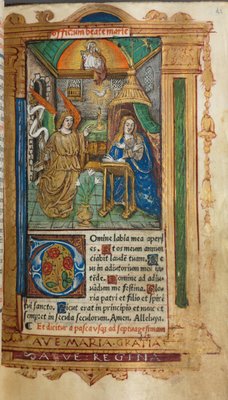 Officium beate marie
Domine labia mea aperi
es. Et os meum annun
ciabit laudē tuam. De
us in adiutorium meū in
tēde. Domine ad adiu
uandum me festina. Glo
ria patri et filio et spiri
tui sancto. Sicut erat in principio et nunc et
semper et in secula seculorum. Amen. Alleluya.
Et dicitur a pasca usq; ad septuagesimam
AVE·MARIA·GRATIA
SALVE·REGINA